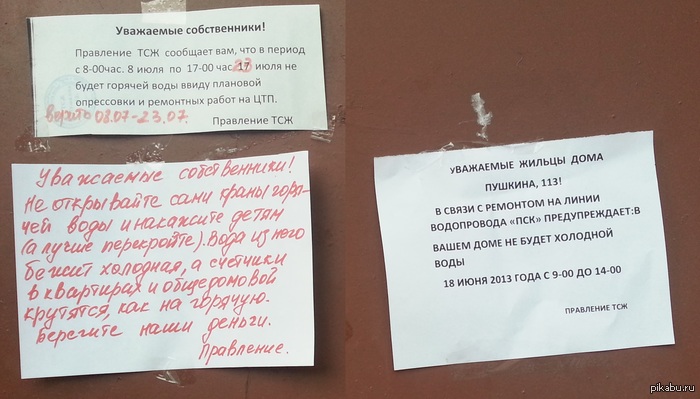 Уважаемые собственники!
Правление ТСЖ сообщает вам, что в период
с 8-00час. 8 июля по 17-00 час. 17 23 июля не
будет горячей воды ввиду плановой
опрессовки и ремонтных работ на ЦТП.
верно 08.07-23.07.
Правление ТСЖ
Уважаемые собственники!
Не открывайте сами краны горя-
чей воды и накажите детям
(а лучше перекройте). Вода из него
бежит холодная, а счетчики
в квартирах и общедомовой
крутятся, как на горячую.
Берегите наши деньги.
Правление.
УВАЖАЕМЫЕ ЖИЛЬЦЫ ДОМА
ПУШКИНА, 113!
В СВЯЗИ С РЕМОНТОМ НА ЛИНИИ
ВОДОПРОВОДА «ПСК» ПРЕДУПРЕЖДАЕТ:В
ВАШЕМ ДОМЕ НЕ БУДЕТ ХОЛОДНОЙ
ВОДЫ
18 ИЮНЯ 2013 ГОДА С 9-00 ДО 14-00
ПРАВЛЕНИЕ ТСЖ
pikabu.ru